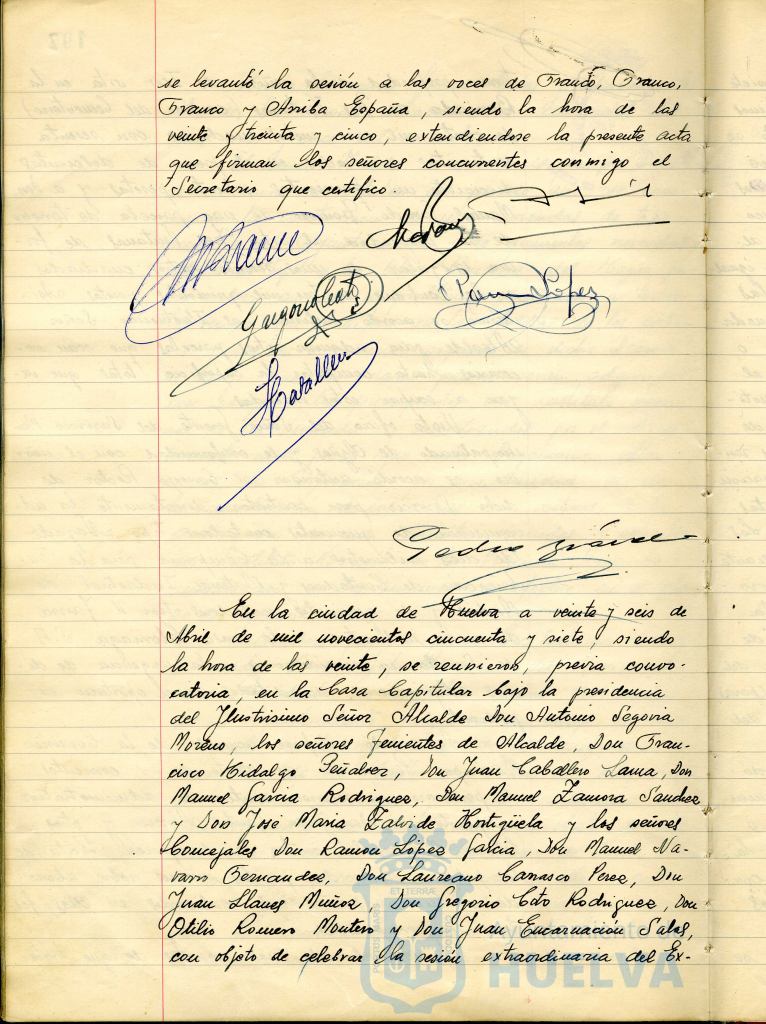 se levantó la sesión a las voces de Franco, Franco,
Franco y Arriba España, siendo la hora de las
veinte y treinta y cinco, extendiendose la presente acta
que firman los señores concurrentes conmigo el
Secretario que certifico.
Ramon Lopez
Gregorio Coto
Caballero
Pedro
En la ciudad de Huelva a veinte y seis de
Abril de mil novecientos cincuenta y siete, siendo
la hora de las veinte, se reunieron, previa convo-
catoria, en la Casa Capitular bajo la presidencia
del Ilustrisimo Señor Alcalde Don Antonio Segovia
Moreno, los señores Tenientes de Alcalde, Don Fran-
cisco Hidalgo Peñalver, Don Juan Caballero Lama, Don
Manuel Garcia Rodriguez, Don Manuel Zamora Sanchez
y Don José Maria Zalvide Hortigüela y los señores
Concejales Don Ramon López Garcia, Don Manuel Na-
varro Fernandez, Don Laureano Carrasco Perez, Don
Juan Llanes Muñoz, Don Gregorio Coto Rodriguez, Don
Otilio Romero Montero y Don Juan Encarnación Salas,
con objeto de celebrar la sesión extraordinaria del Ex-
ET TERRÆ
Ayuntamiento
HUELVA